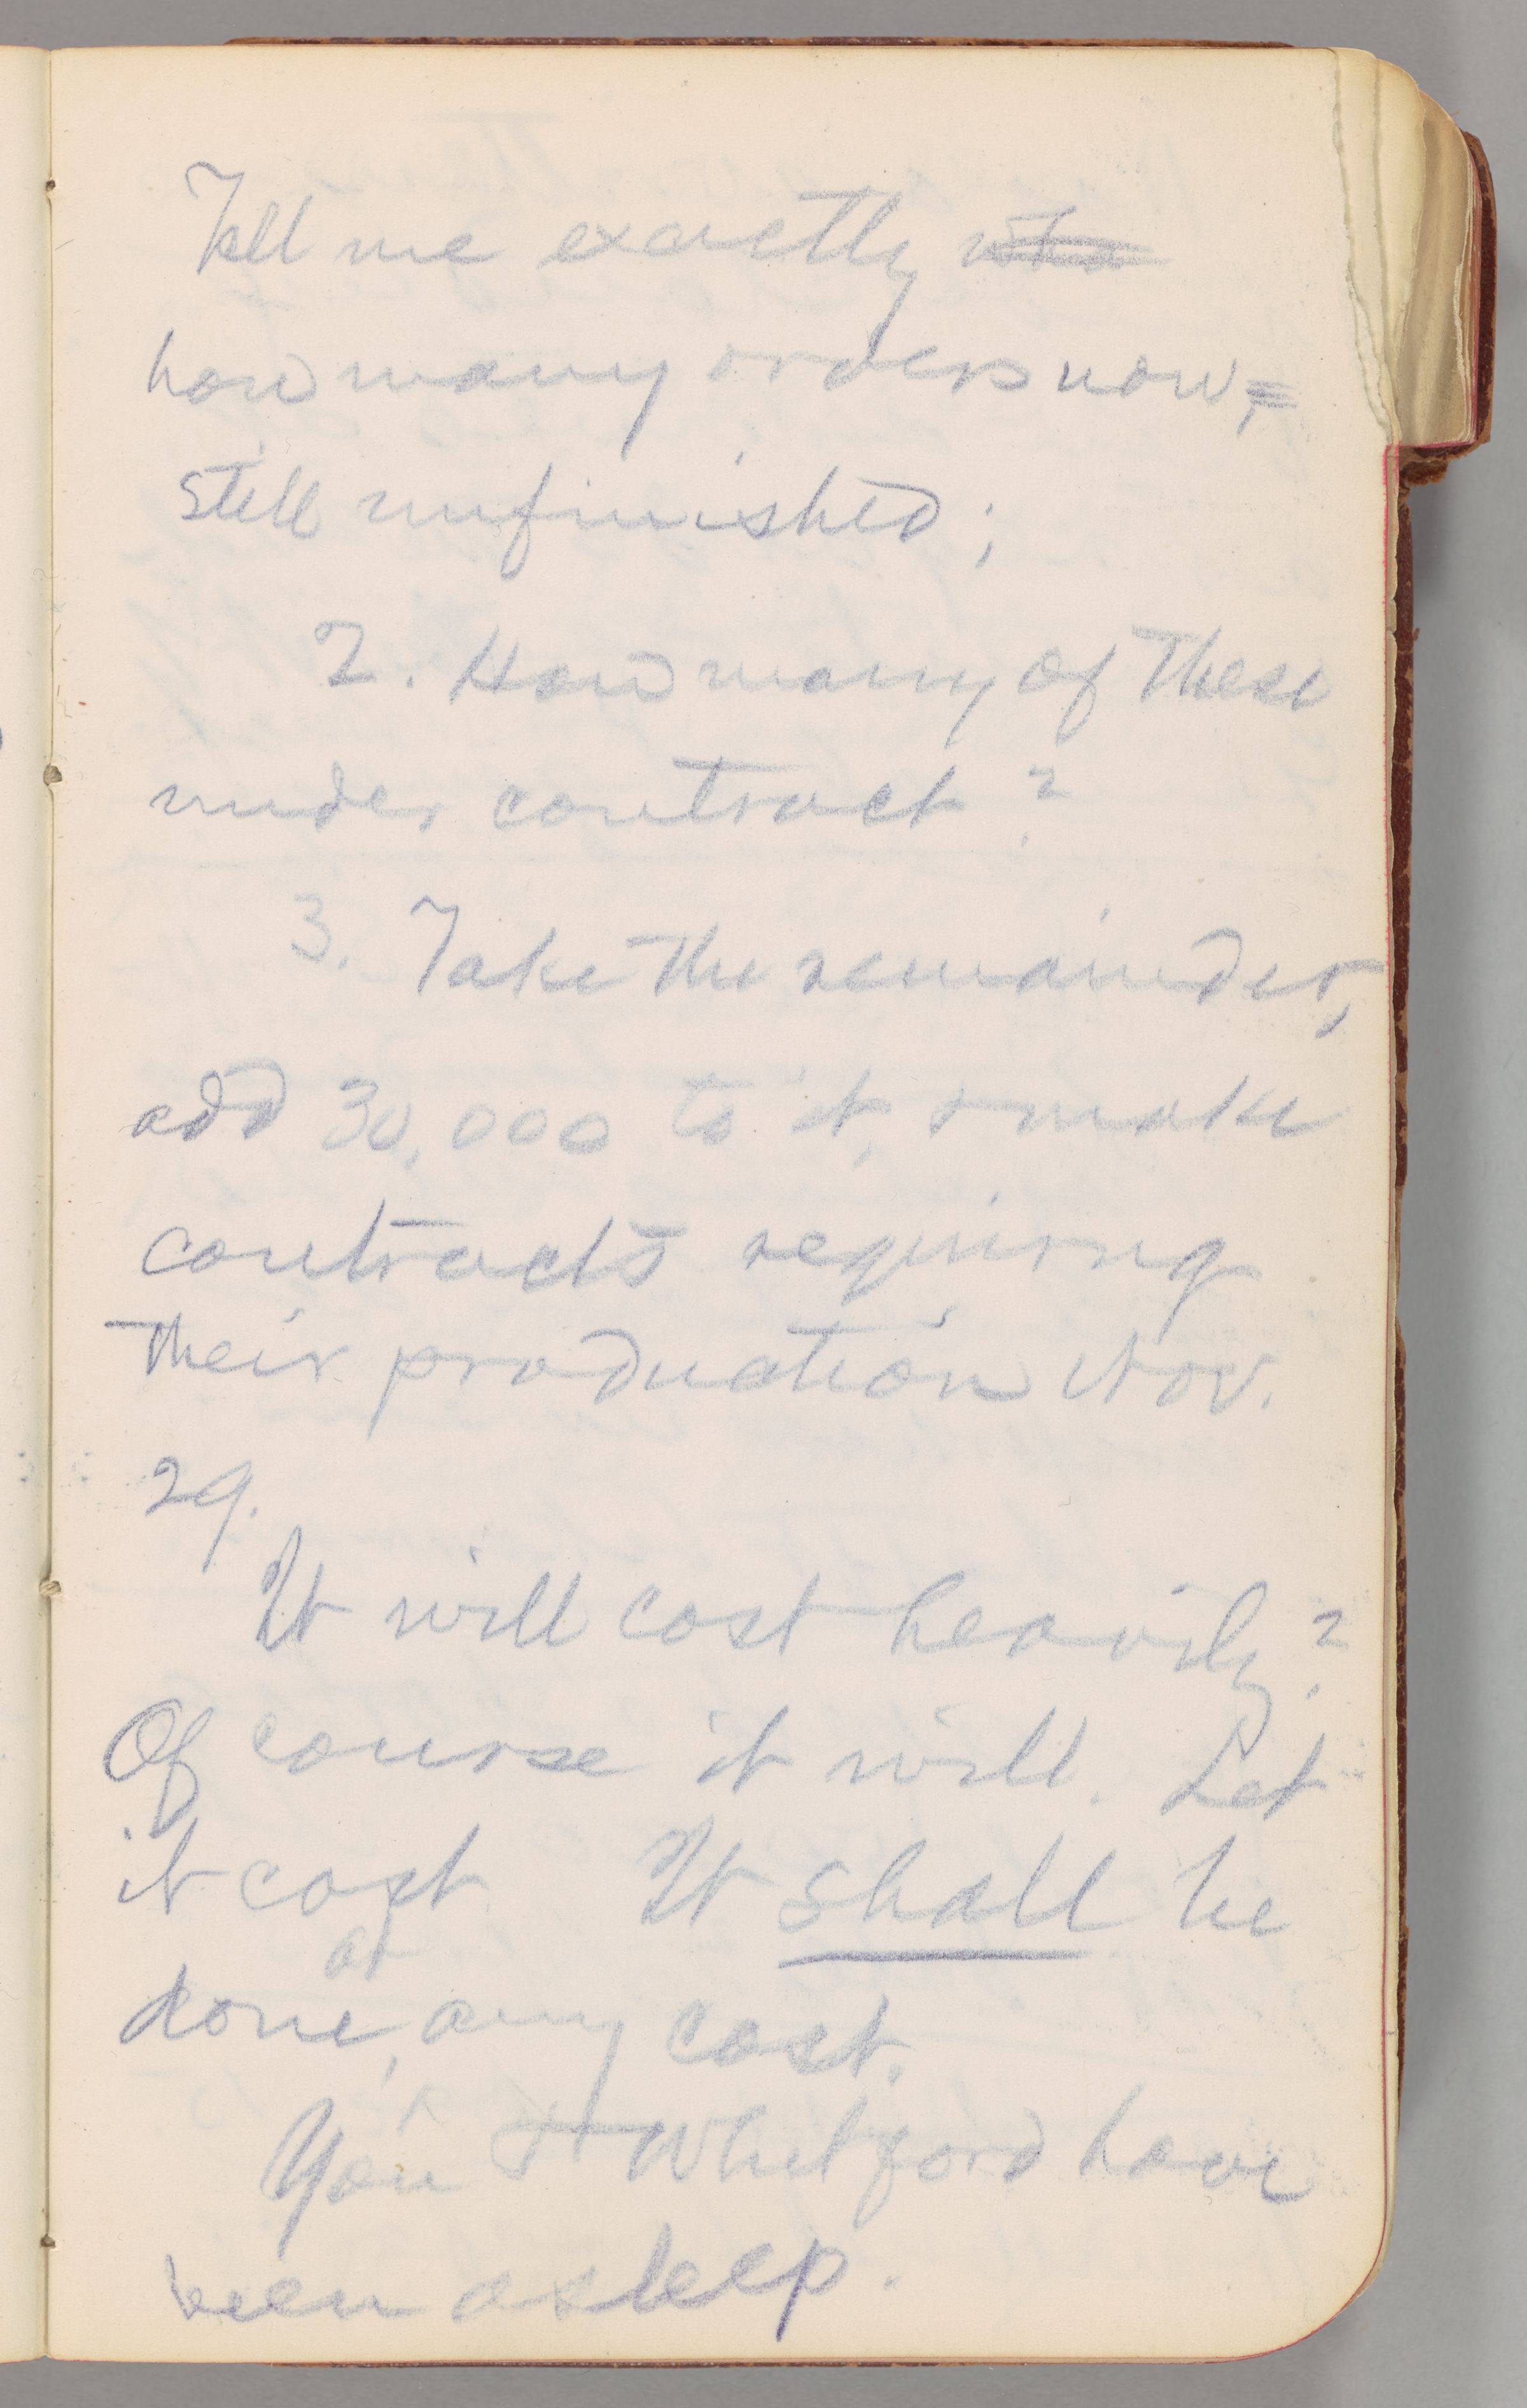 Tell me exactly wha
how many orders now,
still unfinished;
2. How many of these
under contract?
3. Take the remainder,
add 30,000 to it, & make
contracts requiring
their production Nov.
29.
It will cost heavily?
Of course it will. Let
it cost It shall be
at
done, any cost.
You & Whitford have
been asleep.